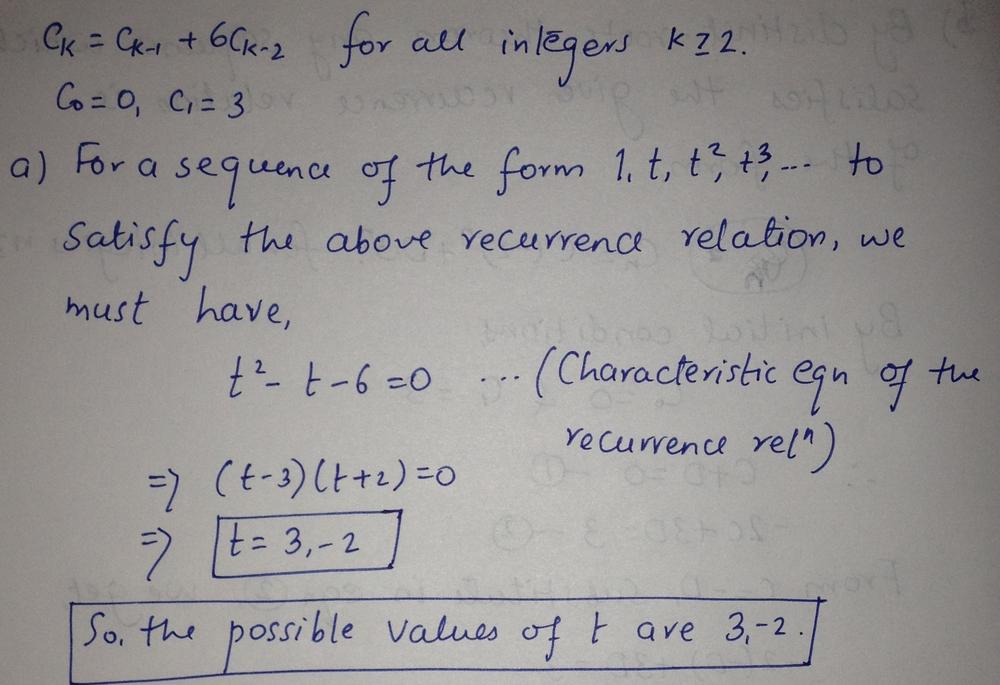 Cₖ = Cₖ₋₁ + 6Cₖ₋₂ for all integers k ≥ 2.
C₀ = 0, C₁ = 3
a) For a sequence of the form 1, t, t², t³, --- to
satisfy the above recurrence relation, we
must have,
t² - t - 6 = 0 ... (Characteristic eqn of the
recurrence relⁿ)
=> (t-3)(t+2)=0
=> t = 3, -2
So, the possible values of t are 3,-2.